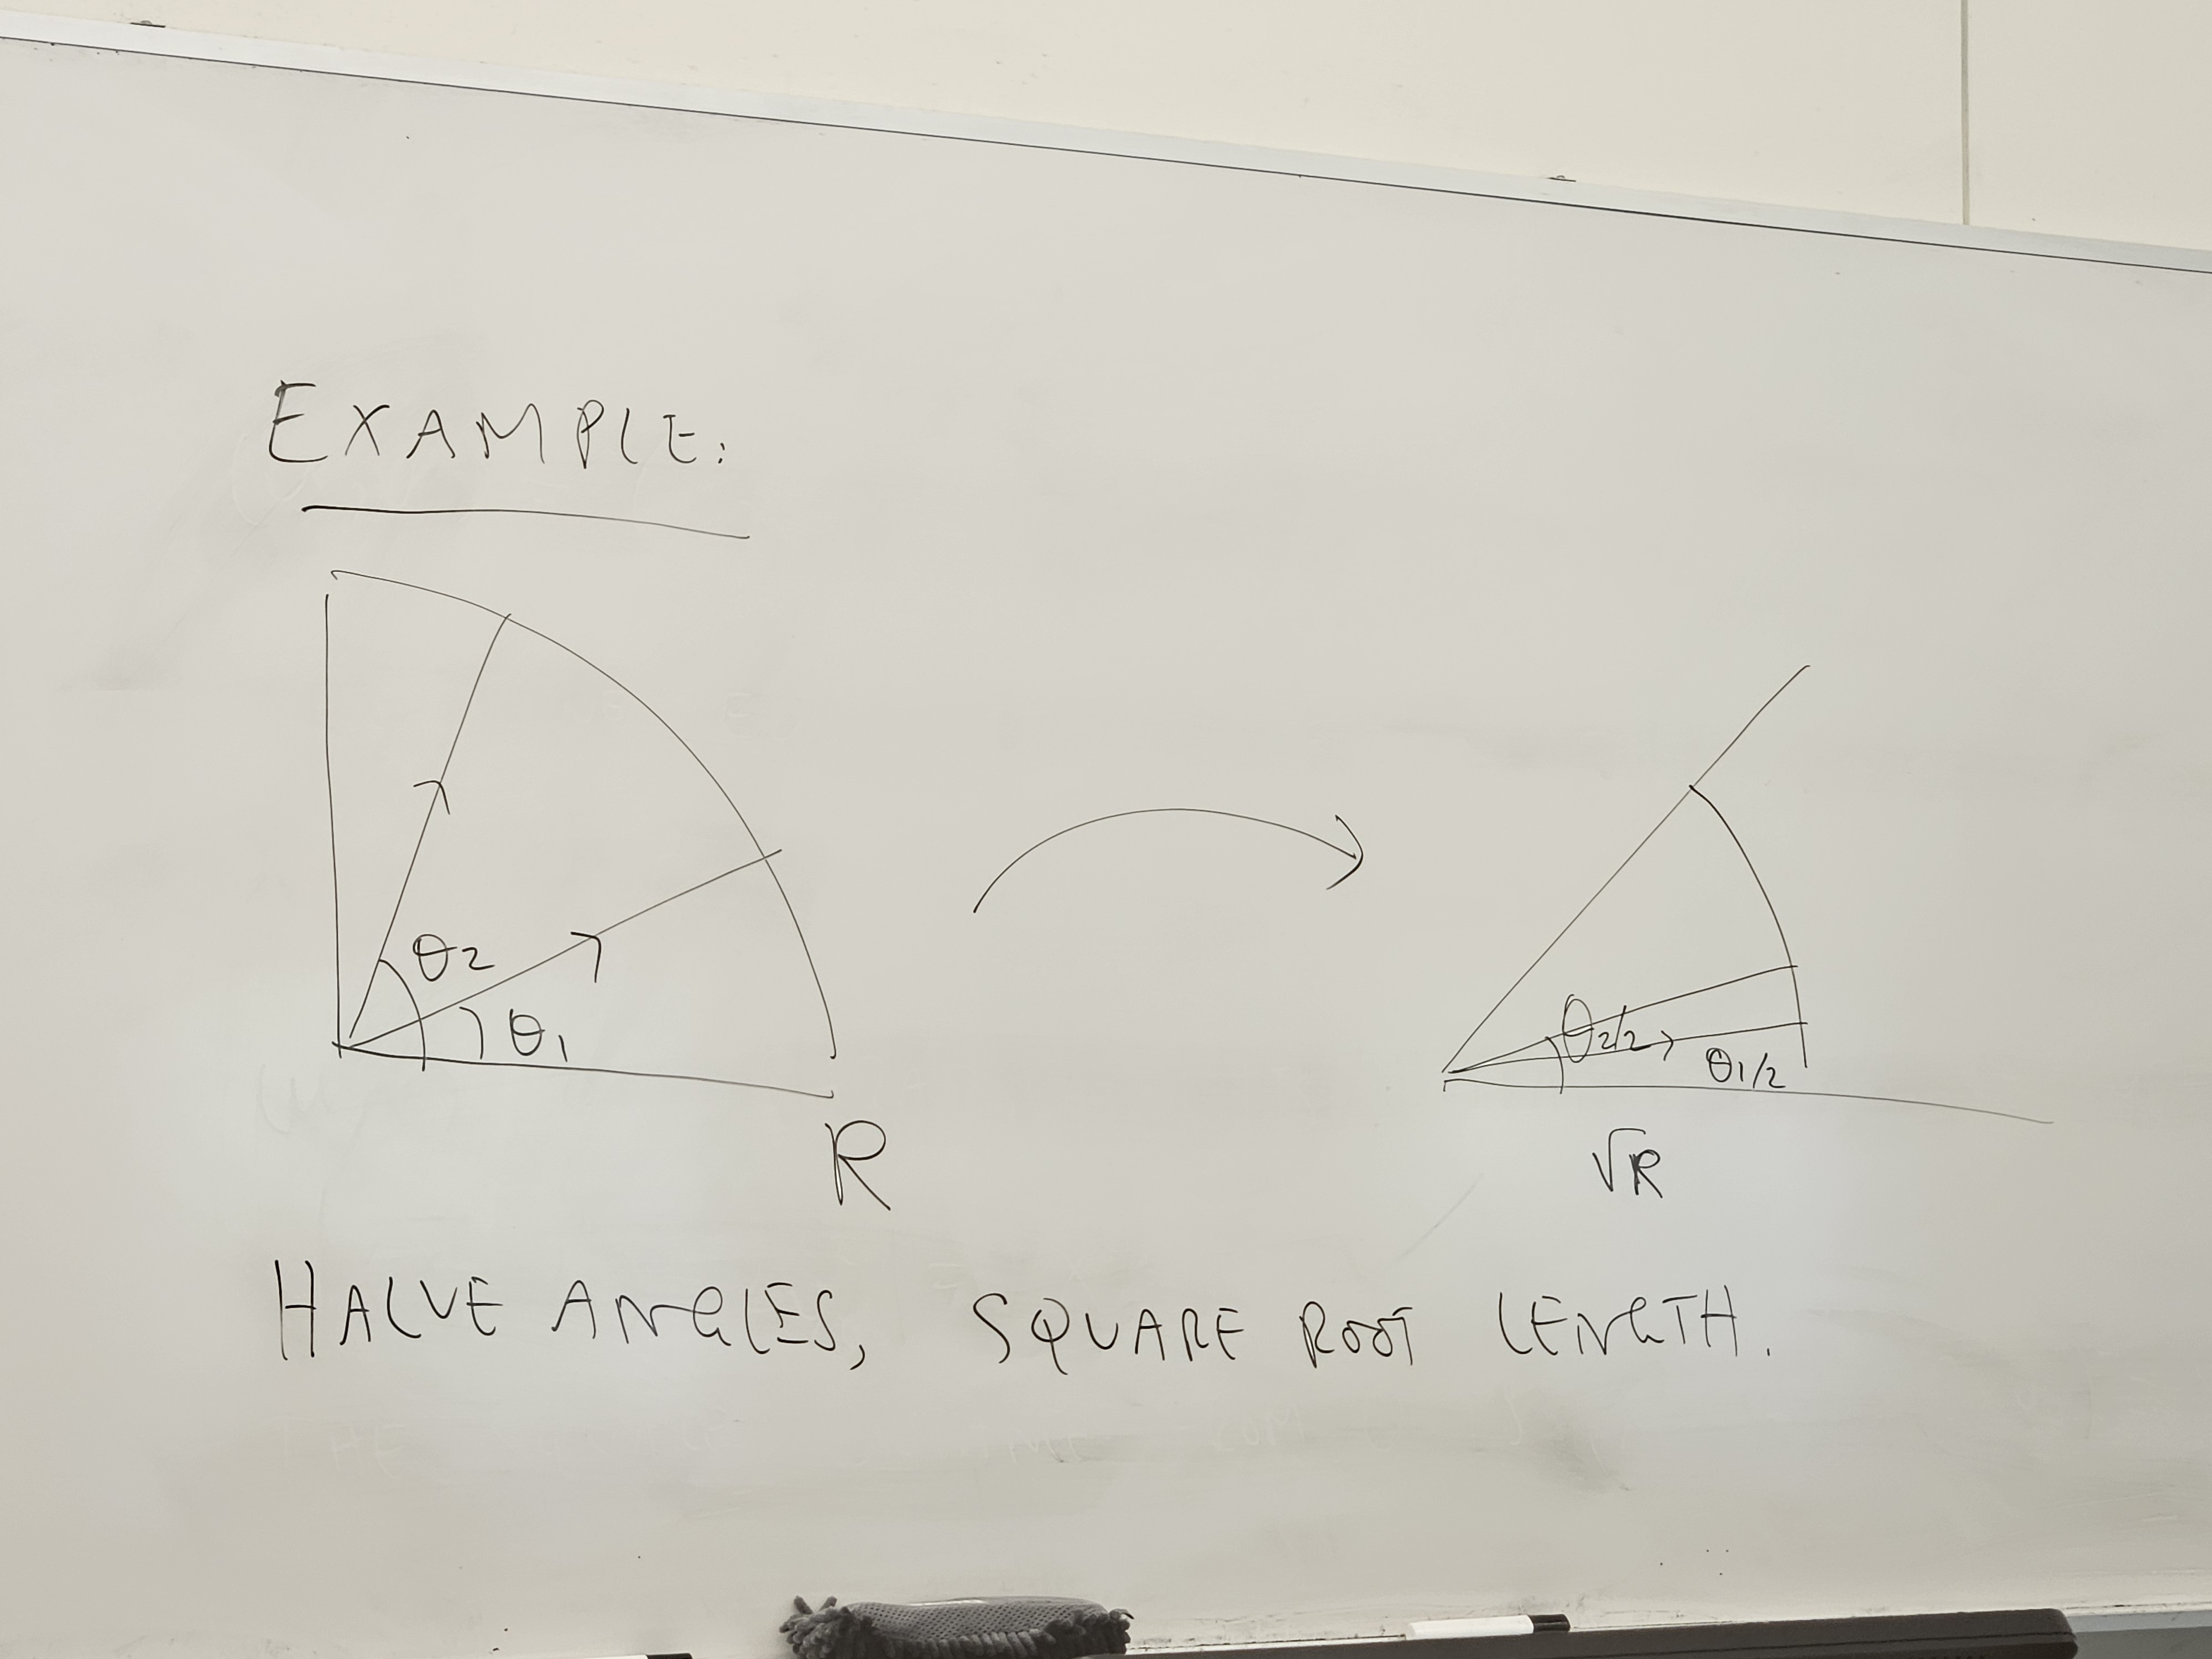 EXAMPLE:
θ2
θ1
R
θ2/2
θ1/2
√R
HALVE ANGLES, SQUARE ROOT LENGTH.